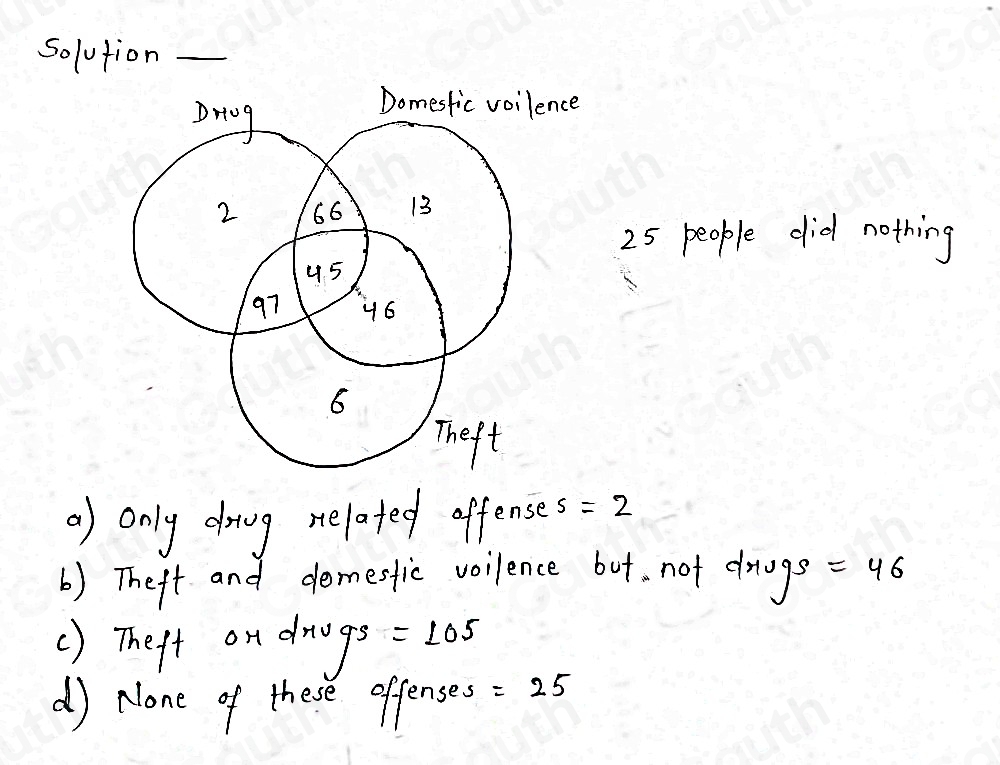 Solution —
Drug
Domestic voilence
2
66
13
45
97
46
6
Theft
25 people did nothing
a) Only drug related offenses = 2
b) Theft and domestic voilence but not drugs = 46
c) Theft or drugs = 105
d) None of these offenses = 25